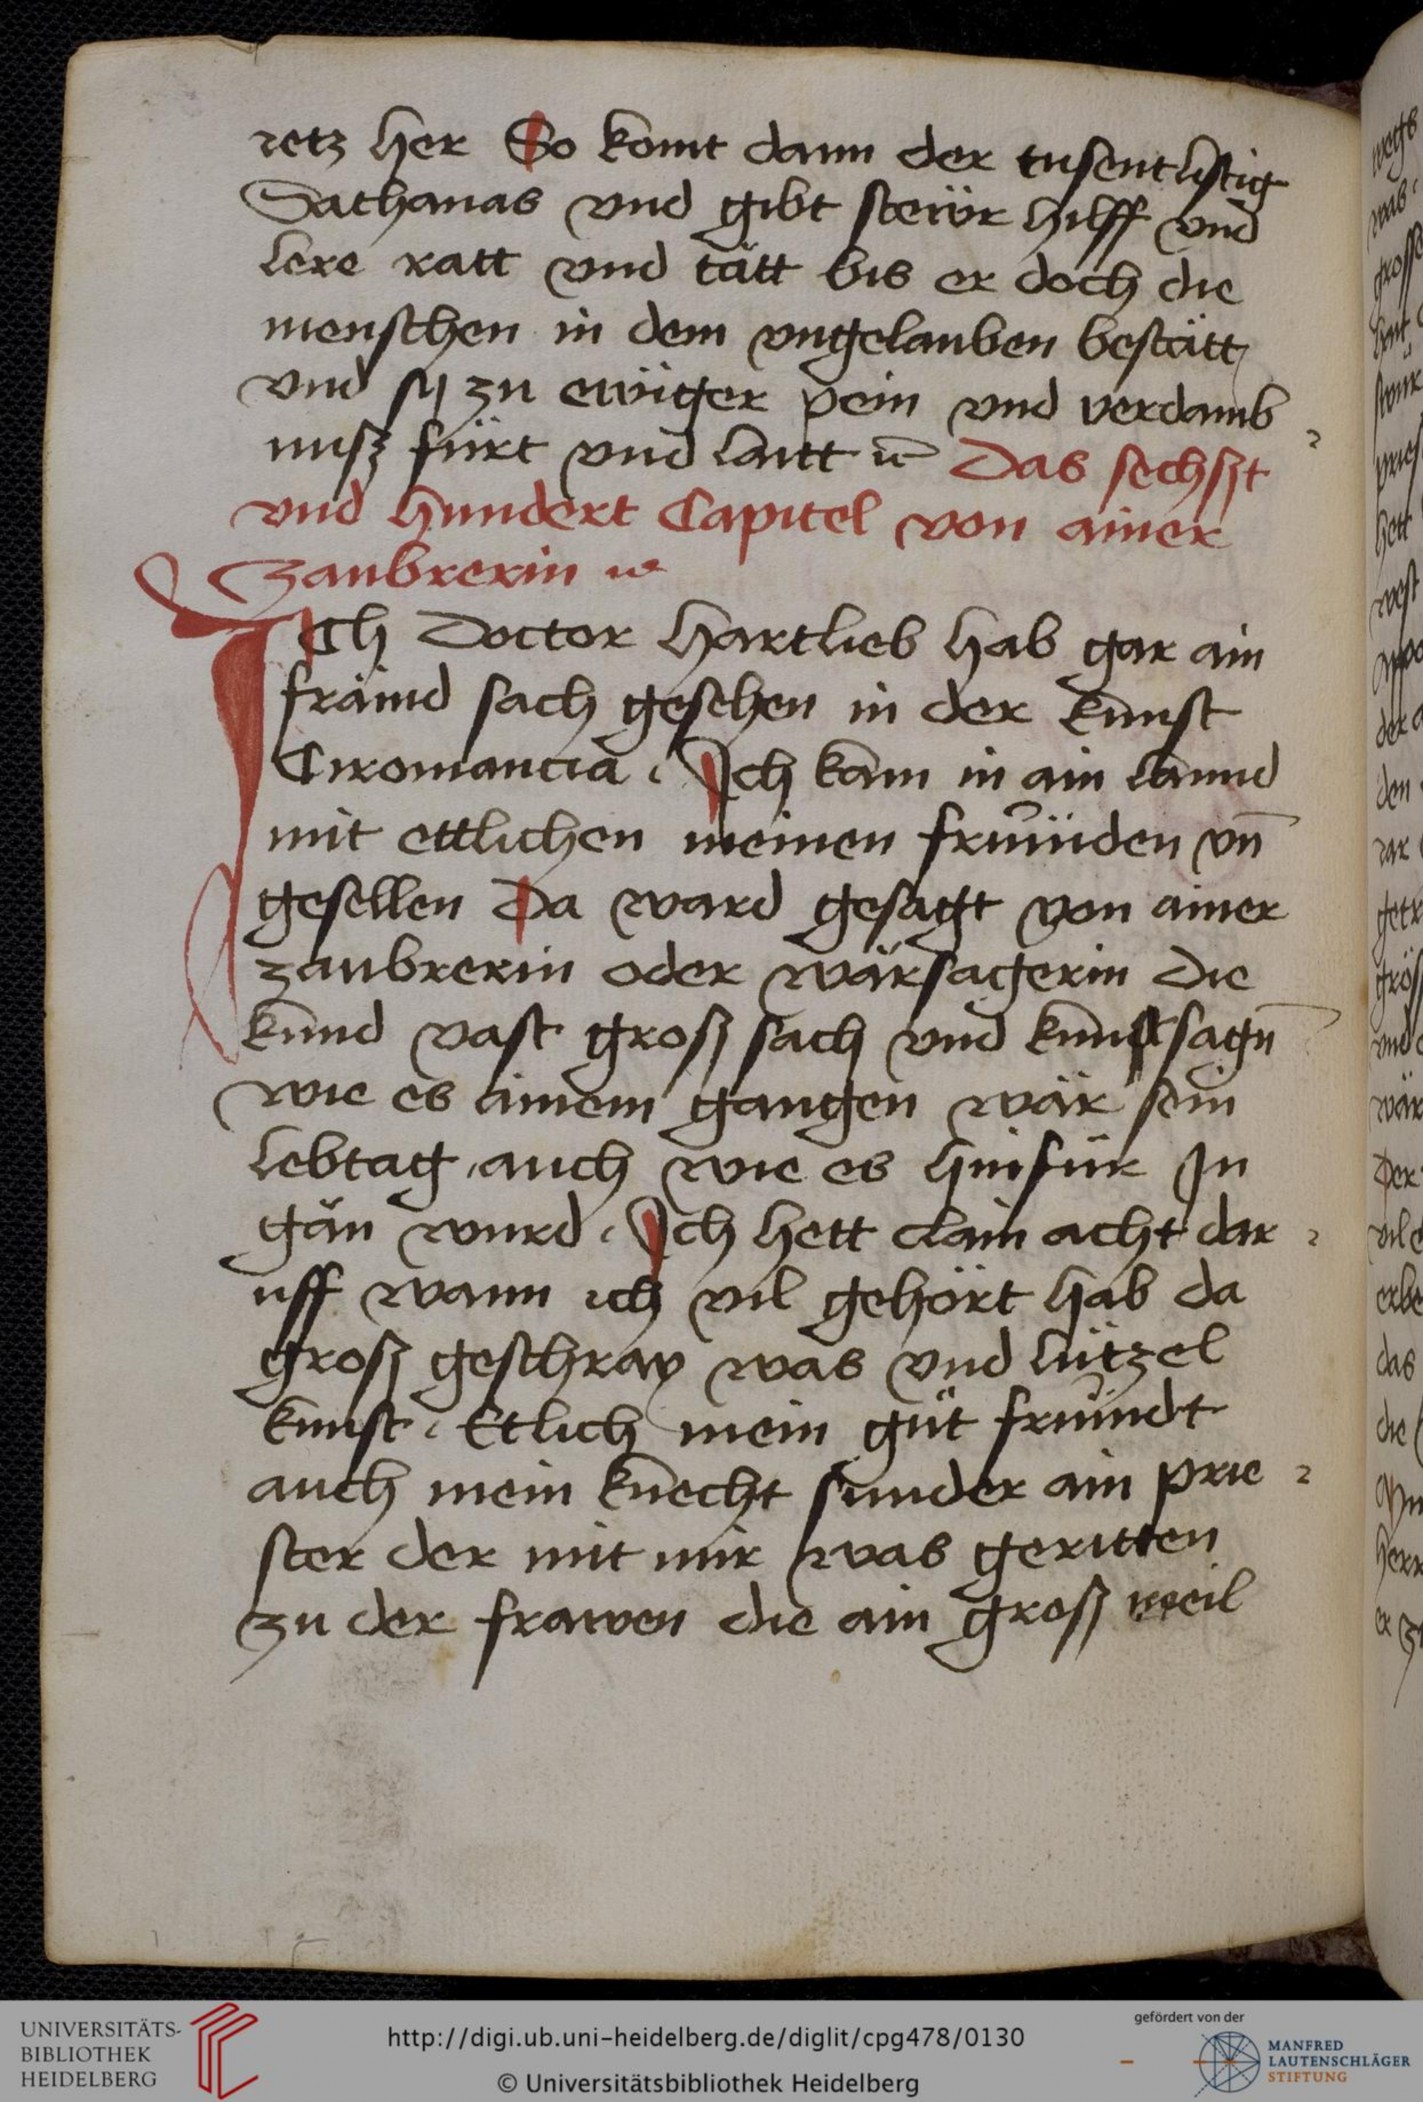 retz her So komt dann der tusentlistig
Sathanas vnd gibt steẅr hilff vnd
lere ratt vnd tätt bis er doch die
menschen in dem vngelauben bestätt
vnd sy zu ewiger pein vnd verdamb
nusz fürt vnd laitt Das sechszt
vnd hundert Capitel von ainer
zaubrerin
ICh Doctor hartlieb hab gar ain
främd sach gesehen in der kunst
Ciromancia Ich kam in ain lannd
mit ettlichen meinen frunden vn̄
gesellen Da ward gesagt von ainer
zaubrerin oder wärsagerin die
kund vast grosz sach vnd kunst sagn̄
wie es ainem gangen wär sein
lebtag auch wie es hinfür Jn
gän wurd Ich hett clain acht dar
uff wann ich vil gehört hab da
grosz geschray was vnd lützel
kunst Etlich mein güt frundt
auch mein knecht sunder ain prie
ster der mit mir was geritten
zu der frawen die ain grosz weil
UNIVERSITÄTS-
BIBLIOTHEK
HEIDELBERG
http://digi.ub.uni-heidelberg.de/diglit/cpg478/0130
© Universitätsbibliothek Heidelberg
gefördert von der
MANFRED
LAUTENSCHLÄGER
STIFTUNG